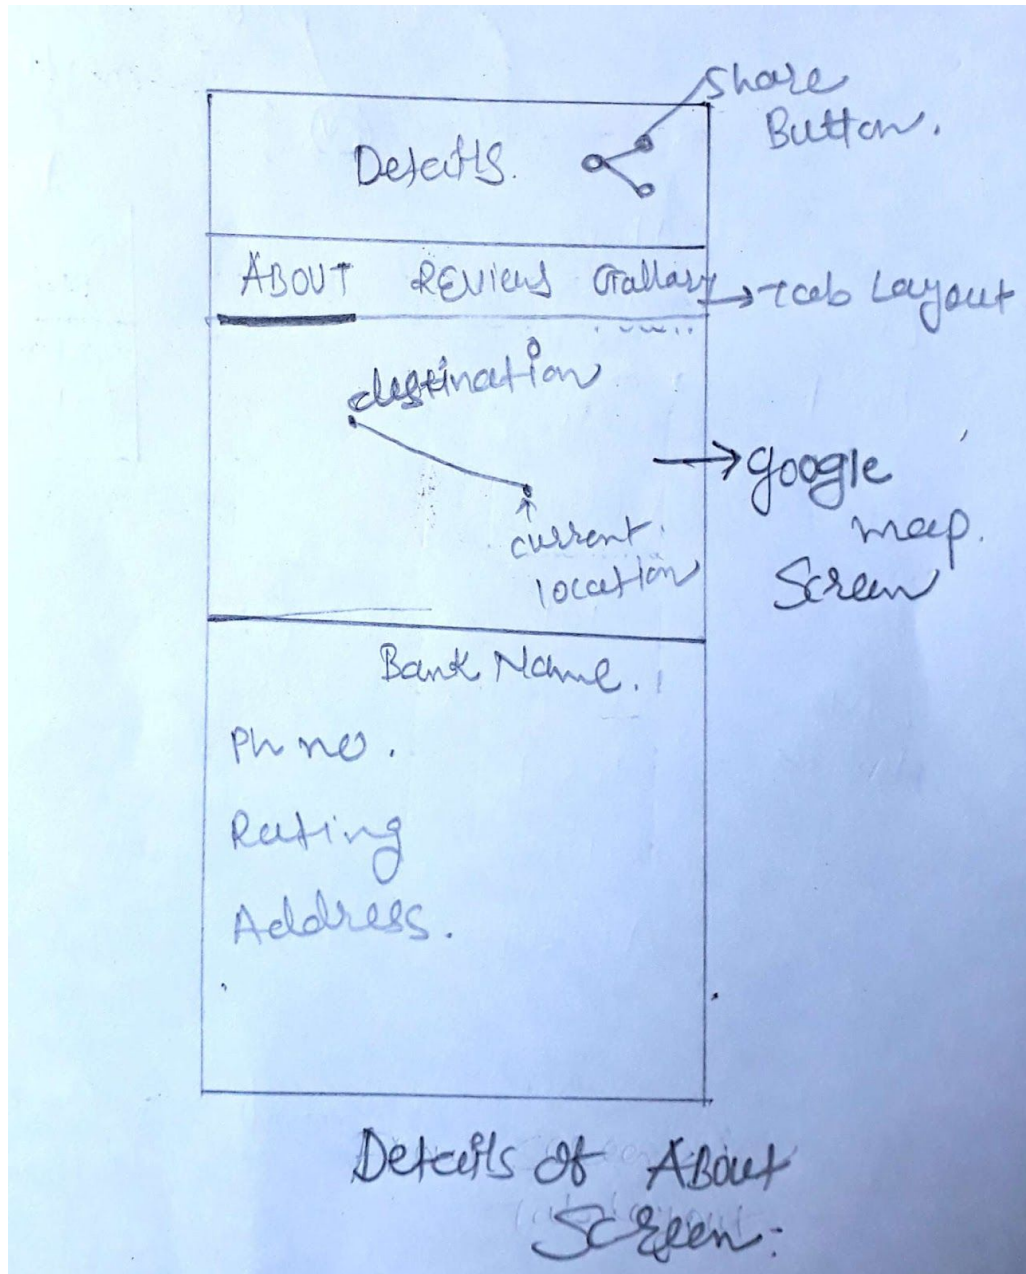 Share
Button.
Details.
ABOUT REVIEWS Gallary
Tab Layout
destination
google
map.
Screen
current
location
Bank Name.
Ph no.
Rating
Address.
Details of About
Screen: